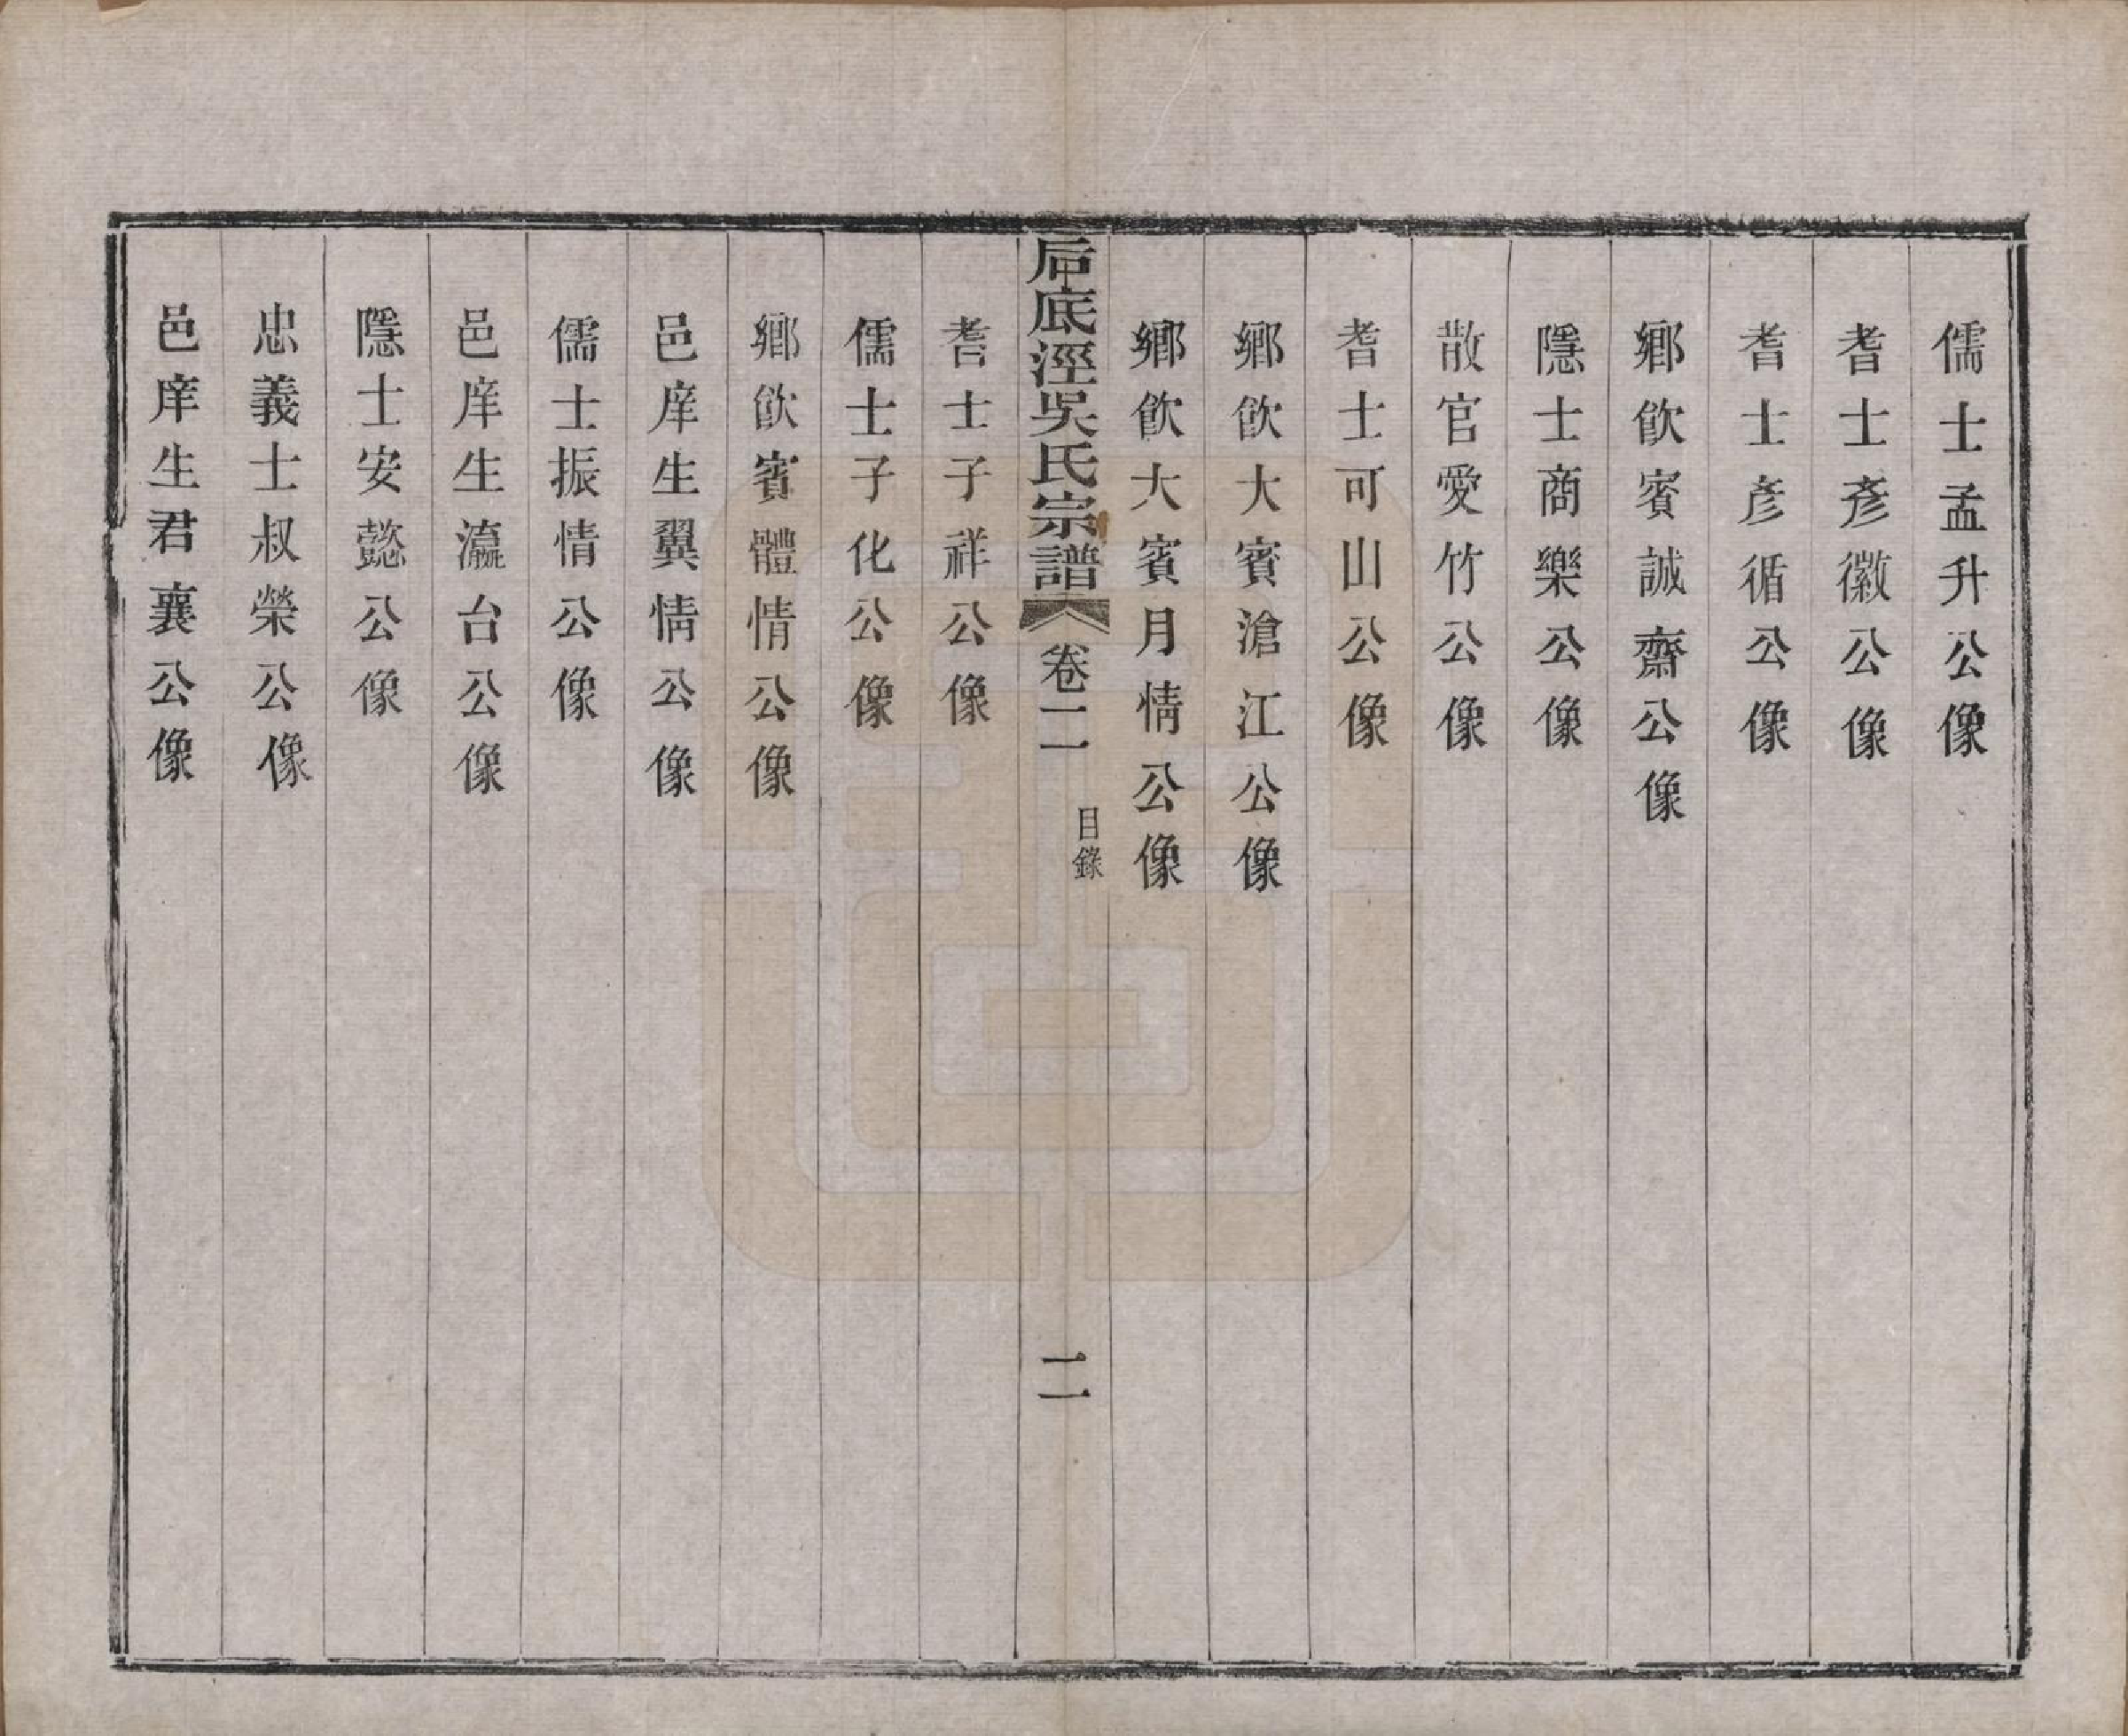 儒士孟升公像
耆士彥徽公像
耆士彥循公像
鄉飲賓誠齋公像
隱士商樂公像
散官愛竹公像
耆士可山公像
鄉飲大賓滄江公像
鄉飲大賓月情公像
后底涇吳氏宗譜 卷二 目錄 二
耆士子祥公像
儒士子化公像
鄉飲賓體情公像
邑庠生翼情公像
儒士振情公像
邑庠生瀛台公像
隱士安懿公像
忠義士叔榮公像
邑庠生君襄公像